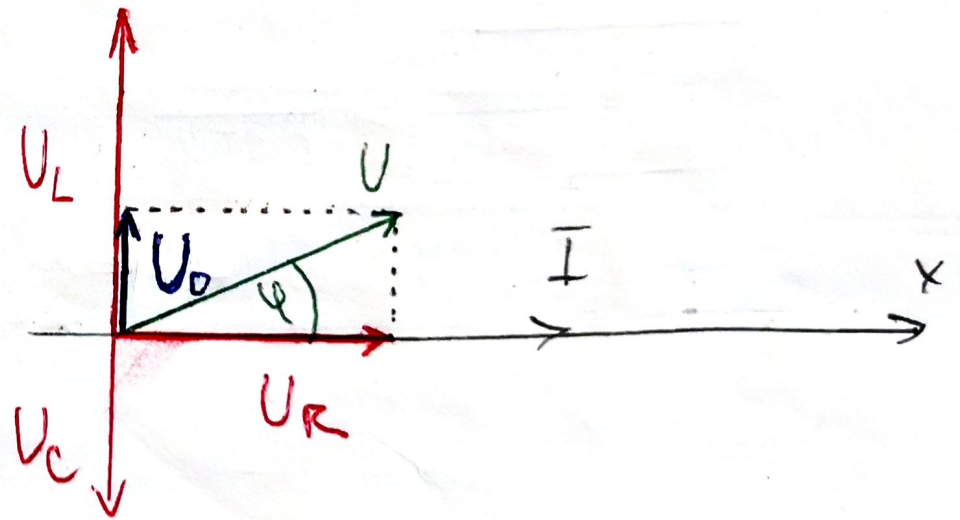 U_L
U
U_D
φ
I
x
U_R
U_C